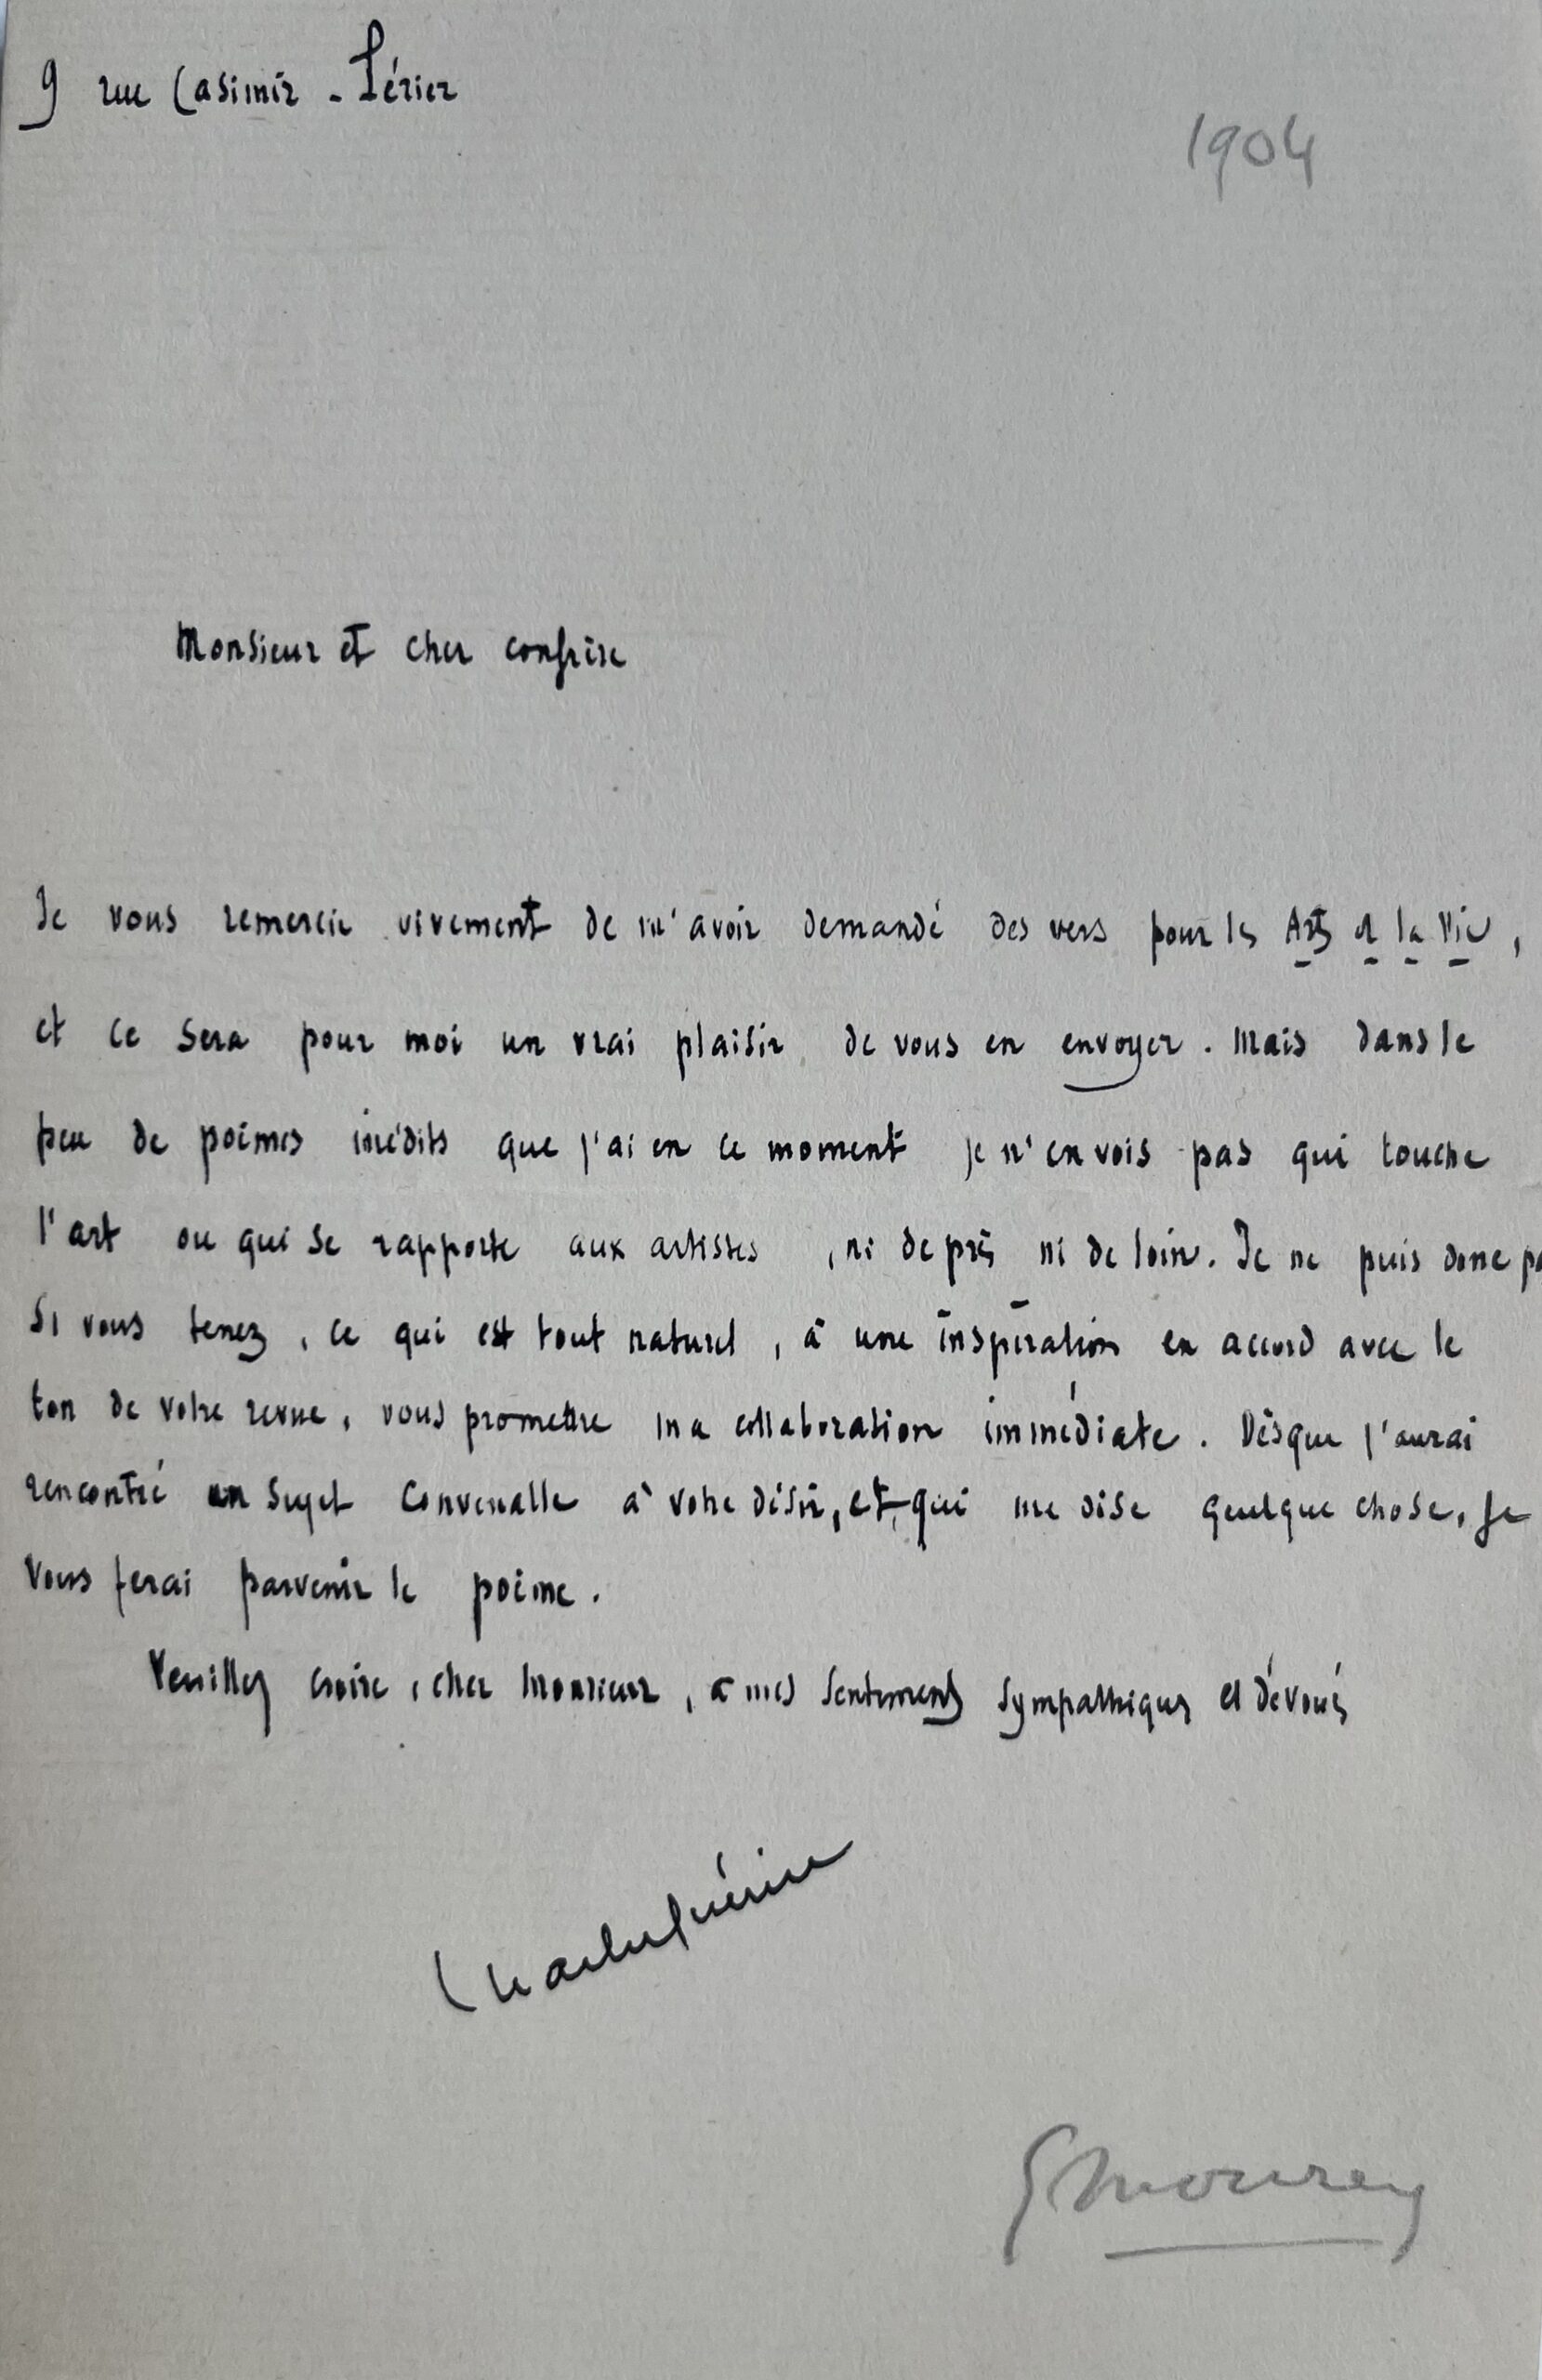 9 rue Casimir-Périer
1904
Monsieur et cher confrère
Je vous remercie vivement de m'avoir demandé des vers pour les Arts et la Vie,
et ce sera pour moi un vrai plaisir de vous en envoyer. Mais dans le
peu de poèmes inédits que j'ai en ce moment je n'en vois pas qui touche
l'art ou qui se rapporte aux artistes, ni de près ni de loin. Je ne puis donc pa
si vous tenez, ce qui est tout naturel, à une inspiration en accord avec le
ton de votre revue, vous promettre ma collaboration immédiate. Dès que j'aurai
rencontré un sujet convenable à votre désir, et qui me dise quelque chose, je
vous ferai parvenir le poème.
Veuillez croire, cher Monsieur, à mes sentiments sympathiques et dévoués
Charles Guérin
G Mourey